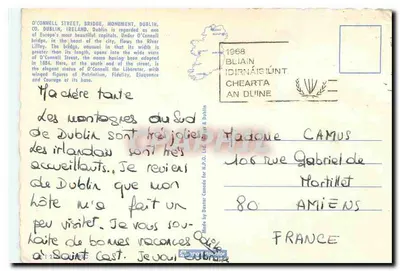 O'CONNELL STREET, BRIDGE, MONUMENT, DUBLIN,
CO. DUBLIN, IRELAND. Dublin is regarded as one
of Europe's most beautiful capitals. Under O'Connell
bridge, in the heart of the city, flows the River
Liffey. The bridge, unusual in that its width is
greater than its length, spans into the wide vista
of O'Connell Street, the name having been adopted
in 1884. Here, at the south end of the street, is
the elegant statue of O'Connell the Liberator, with
winged figures of Patriotism, Fidelity, Eloquence
and Courage at its base.
1968
BLIAIN
IDIRNÁISIÚNT
CHEARTA
AN DUINE
Ma chère tante
Les montagnes au Sud
de Dublin sont très jolies
Les irlandais sont très
accueillants. Je reviens
de Dublin que mon
hôte m'a fait un
peu visiter. Je vous sou-
haite de bonnes vacances
à Saint Cast. Je vous embrasse
Odile
Madame CAMUS
106 rue Gabriel de
Mortillet
80 AMIENS
FRANCE